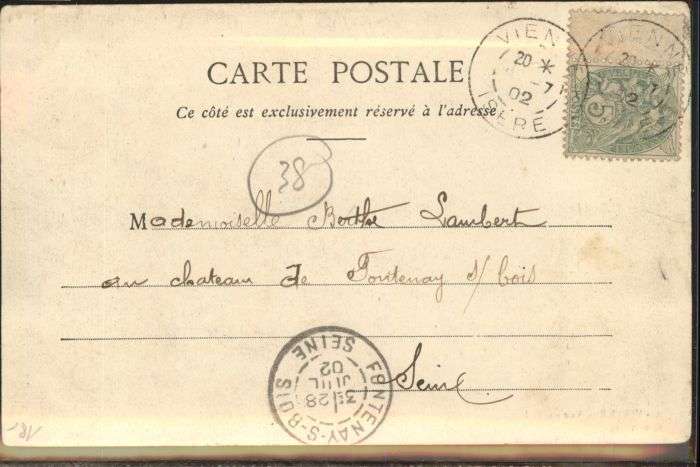 CARTE POSTALE
Ce côté est exclusivement réservé à l'adresse
VIENNE
20 *
-7
02
ISERE
5
38
Mademoiselle Berthe Lambert
au chateau de Fontenay s/bois
Seine
FONTENAY-S-BOIS
3E/28
JUIL
02
SEINE